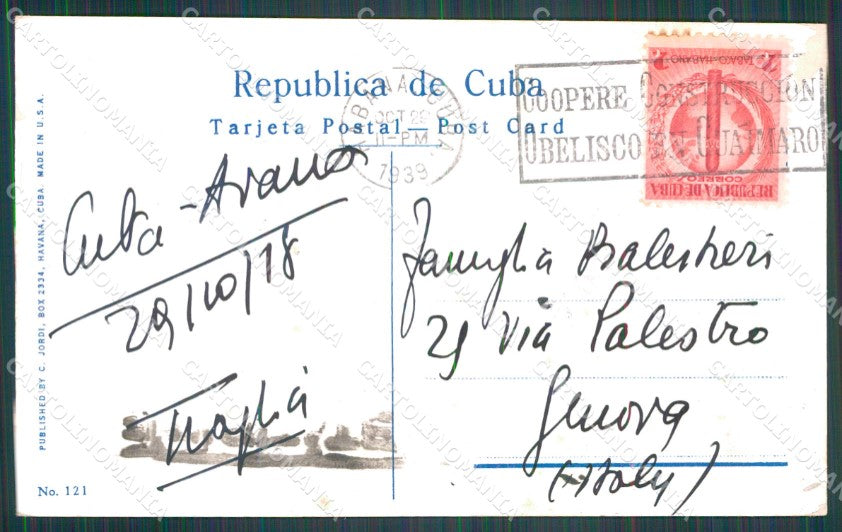 Republica de Cuba
Tarjeta Postal — Post Card
HABANA, CUBA
OCT 29
11-PM
1939
COOPERE CONSTRUCCION
OBELISCO EN GUAIMARO
TABACO HABANO
CORREOS
REPUBLICA DE CUBA
Cuba - Avana
29/10/18
Famiglia Balestreri
21 Via Palestro
Genova
(Italy)
PUBLISHED BY C. JORDI, BOX 2334, HAVANA, CUBA. MADE IN U.S.A.
No. 121
CARTOLINOMANIA